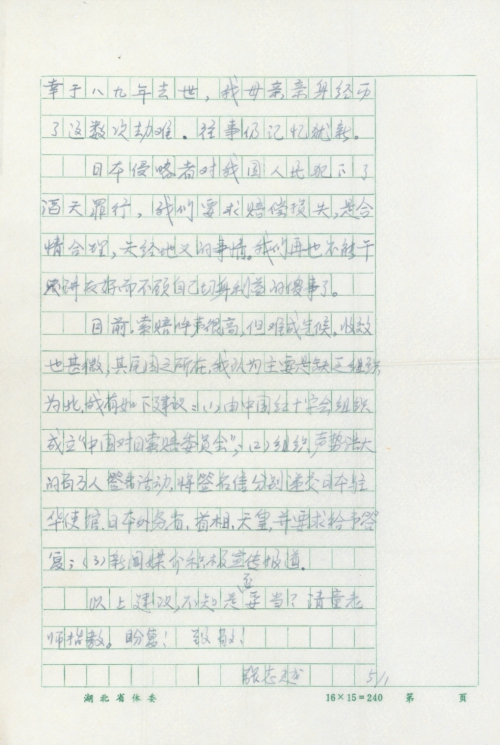 幸于八九年去世，我母亲亲身经历
了这数次劫难。往事仍记忆犹新。
日本侵略者对我国人民犯下了
滔天罪行，我们要求赔偿损失，是合
情合理，天经地义的事情。我们再也不能干
讲友好而不顾自己切身利益的傻事了。
目前，索赔呼声很高，但难成气候，收效
也甚微，其原因之所在，我认为主要是缺乏组织
为此，我有如下建议：(1)由中国红十字会组织
成立“中国对日索赔委员会”；(2)组织声势浩大
的百万人签名活动，将签名信分别递交日本驻
华使馆、日本外务省，首相，天皇，并要求给予答
复；(3)新闻媒介积极宣传报道。
以上建议，不知是否妥当？请童老
师指教。盼复！ 致敬！
张志 5/1
湖北省体委 16×15=240 第 页